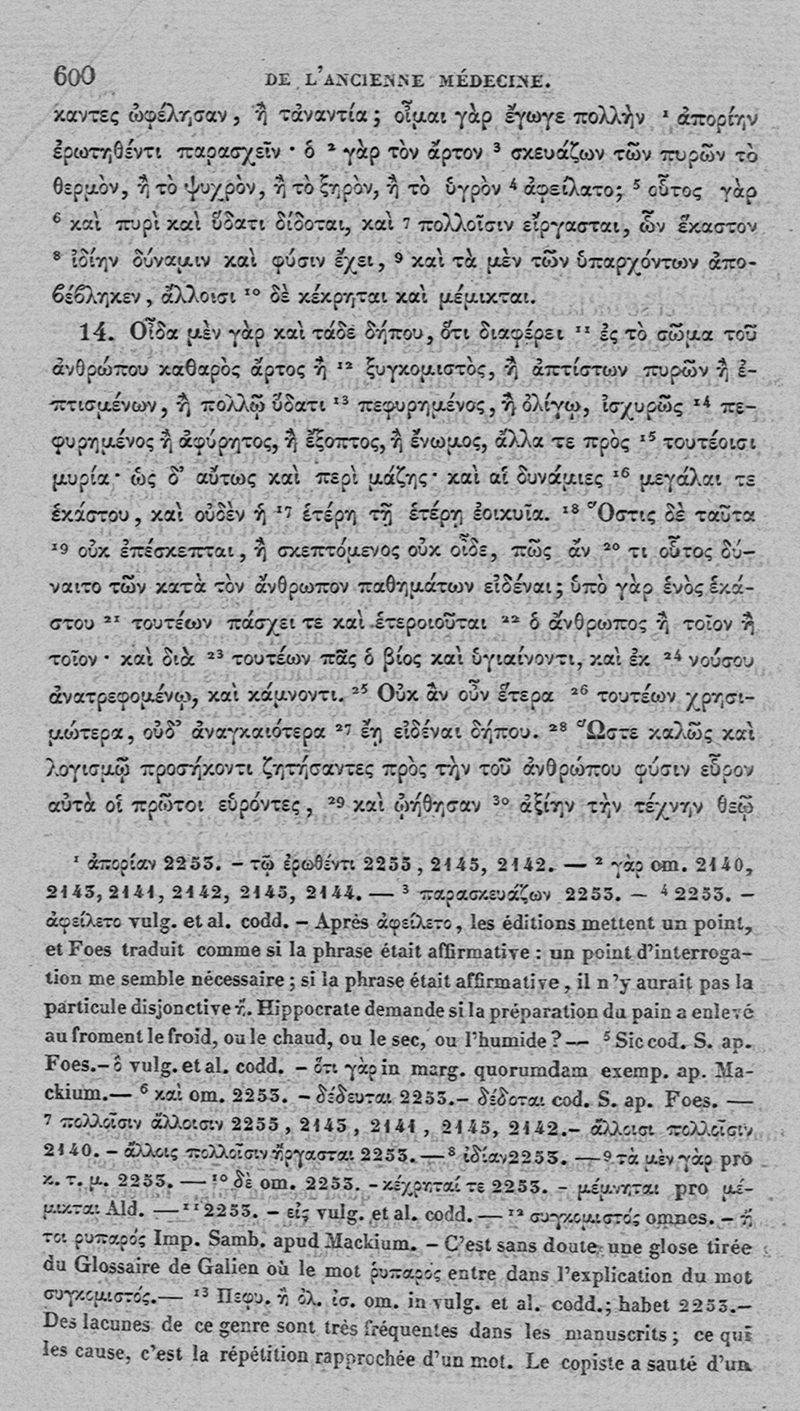 600 DE L'ANCIENNE MÉDECINE.
καντες ὠφέλησαν, ἢ τἀναντία; οἶμαι γὰρ ἔγωγε πολλὴν ¹ ἀπορίην
ἐρωτηθέντι παρασχεῖν · ὁ ² γὰρ τὸν ἄρτον ³ σκευάζων τῶν πυρῶν τὸ
θερμὸν, ἢ τὸ ψυχρὸν, ἢ τὸ ξηρὸν, ἢ τὸ ὑγρὸν ⁴ ἀφείλατο; ⁵ οὗτος γὰρ
⁶ καὶ πυρὶ καὶ ὕδατι δίδοται, καὶ ⁷ πολλοῖσιν εἴργασται, ὧν ἕκαστον
⁸ ἰδίην δύναμιν καὶ φύσιν ἔχει, ⁹ καὶ τὰ μὲν τῶν ὑπαρχόντων ἀπο-
ϐέϐληκεν, ἄλλοισι ¹⁰ δὲ κέκρηται καὶ μέμικται.
14. Οἶδα μὲν γὰρ καὶ τάδε δήπου, ὅτι διαφέρει ¹¹ ἐς τὸ σῶμα τοῦ
ἀνθρώπου καθαρὸς ἄρτος ἢ ¹² ξυγκομιστὸς, ἢ ἀπτίστων πυρῶν ἢ ἐ-
πτισμένων, ἢ πολλῷ ὕδατι ¹³ πεφυρημένος, ἢ ὀλίγῳ, ἰσχυρῶς ¹⁴ πε-
φυρημένος ἢ ἀφύρητος, ἢ ἔξοπτος, ἢ ἔνωμος, ἄλλα τε πρὸς ¹⁵ τουτέοισι
μυρία· ὡς δ' αὔτως καὶ περὶ μάζης· καὶ αἱ δυνάμιες ¹⁶ μεγάλαι τε
ἑκάστου, καὶ οὐδὲν ἡ ¹⁷ ἑτέρη τῇ ἑτέρῃ ἐοικυῖα. ¹⁸ Ὅστις δὲ ταῦτα
¹⁹ οὐκ ἐπέσκεπται, ἢ σκεπτόμενος οὐκ οἶδε, πῶς ἄν ²⁰ τι οὗτος δύ-
ναιτο τῶν κατὰ τὸν ἄνθρωπον παθημάτων εἰδέναι; ὑπὸ γὰρ ἑνὸς ἑκά-
στου ²¹ τουτέων πάσχει τε καὶ ἑτεροιοῦται ²² ὁ ἄνθρωπος ἢ τοῖον ἢ
τοῖον · καὶ διὰ ²³ τουτέων πᾶς ὁ βίος καὶ ὑγιαίνοντι, καὶ ἐκ ²⁴ νούσου
ἀνατρεφομένῳ, καὶ κάμνοντι. ²⁵ Οὐκ ἂν οὖν ἕτερα ²⁶ τουτέων χρησι-
μώτερα, οὐδ' ἀναγκαιότερα ²⁷ ἔη εἰδέναι δήπου. ²⁸ Ὥστε καλῶς καὶ
λογισμῷ προσήκοντι ζητήσαντες πρὸς τὴν τοῦ ἀνθρώπου φύσιν εὗρον
αὐτὰ οἱ πρῶτοι εὑρόντες, ²⁹ καὶ ᾠήθησαν ³⁰ ἀξίην τὴν τέχνην θεῷ
¹ ἀπορίαν 2253. – τῷ ἐρωθέντι 2253, 2145, 2142. — ² γὰρ om. 2140,
2143, 2141, 2142, 2145, 2144. — ³ παρασκευάζων 2253. – ⁴ 2253. –
ἀφείλετο vulg. et al. codd. – Après ἀφείλετο, les éditions mettent un point,
et Foes traduit comme si la phrase était affirmative : un point d'interroga-
tion me semble nécessaire ; si la phrase était affirmative, il n'y aurait pas la
particule disjonctive ἤ. Hippocrate demande si la préparation du pain a enlevé
au froment le froid, ou le chaud, ou le sec, ou l'humide ? — ⁵ Sic cod. S. ap.
Foes.– ὁ vulg. et al. codd. – ὅτι γὰρ in marg. quorumdam exemp. ap. Ma-
ckium.— ⁶ καὶ om. 2253. – δέδευται 2253.– δέδοται cod. S. ap. Foes. —
⁷ πολλοῖσιν ἄλλοισιν 2253, 2143, 2141, 2145, 2142.– ἄλλοισι πολλοῖσιν
2140. – ἄλλοις πολλοῖσιν ἤργασται 2253.—⁸ ἰδίαν 2253. —⁹ τὰ μὲν γὰρ pro
κ. τ. μ. 2253. —¹⁰ δὲ om. 2253. – κέχρηταί τε 2253. – μέμνηται pro μέ-
μικται Ald. —¹¹ 2253. – εἰς vulg. et al. codd. — ¹² συγκομιστός omnes. – ἤ
τοι ρυπαρός Imp. Samb. apud Mackium. – C'est sans doute une glose tirée
du Glossaire de Galien où le mot ῥυπαρός entre dans l'explication du mot
συγκομιστός.— ¹³ Πεφυ. ἢ ὀλ. ἰσ. om. in vulg. et al. codd.; habet 2253.—
Des lacunes de ce genre sont très fréquentes dans les manuscrits ; ce qui
les cause, c'est la répétition rapprochée d'un mot. Le copiste a sauté d'un